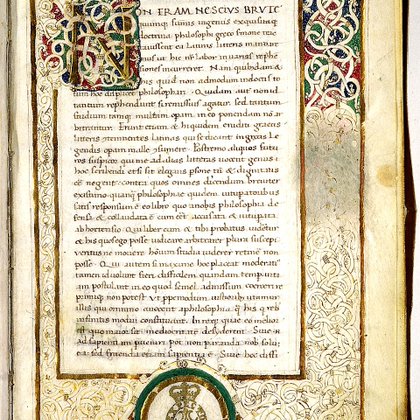 ON ERAM NESCIVS BRVTE
quumque sumis ingeniis exquisitaque
doctrina philosophi greco sermone trac
tauissent ea Latinis litteris mandare
mus ut hic noster labor in varias reprehe
siones incurreret. Nam quibusdam &
his quidem non admodum indoctis to
tum hoc displicet philosophari. Quidam aut non
tantum reprehendunt si remissius agatur sed tantum
studium tamque multam opam in eo ponendam non ar
bitrantur. Erunt etiam & hi quidem eruditi grecis
litteris contemnentes latinas qui se dicant in grecis le
gendis opam malle consumere. Postremo aliquos futu
ros suspicor qui me ad alias litteras vocent genus hoc
scribendi etsi sit elegans persone tamen & dignitatis
esse negent. Contra quos omnes dicendum breviter
existimo quanquam philosophie quidem vituperatoribus
satis responsum est eo libro quo a nobis philosophia de
fensa & collaudata est cum esset accusata & vituperata
ab hortensio. Qui liber cum & tibi probatus videretur
& his quos ego posse iudicare arbitrarer plura suscepi
veritus ne movere hominum studia viderer retinere non
posse. Qui autem si maxime hoc placeat moderatius
tamen id volunt fieri difficilem quandam temperantiam
postulant in eo quod semel admissum coerceri re
primique non potest. Ut propemodum iustioribus utamur
illis qui omnino avocent a philosophia quam his qui rebus
infinitis modum constituant. In reque eo meliore
quo maior sit mediocritatem desiderent. Sive enim
ad sapientiam perveniri potest non paranda nobis solum
ea sed fruenda etiam sapientia est. Sive hoc diffi